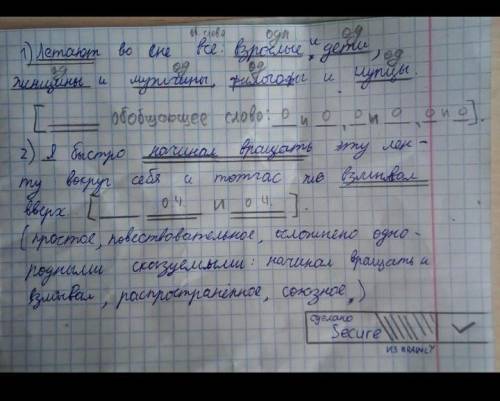 об. слово одн и од
1) Летают во сне все: взрослые и дети,
од од од
женщины и мужчины, филологи и купцы.
[ ___ обобщающее слово: О и О, О и О, О и О].
2) Я быстро начинал вращать эту лен-
ту вокруг себя и тотчас же взмывал
вверх. [ ___ о.ч. и о.ч. ].
(простое, повествовательное, осложнено одно-
родными сказуемыми: начинал вращать и
взмывал, распространённое, союзное.)
сделано
Secure